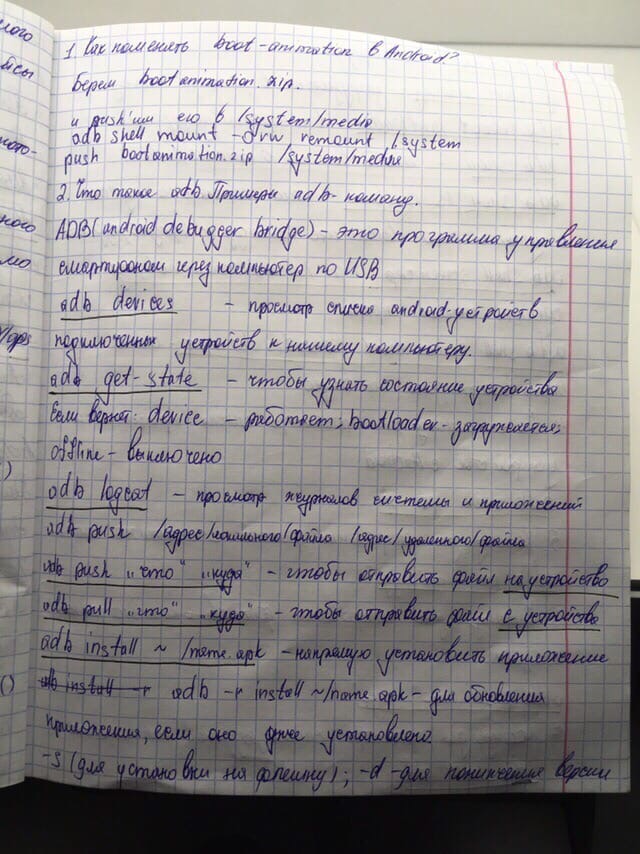 ного
ного
мо
1. Как поменять boot-animation в Android?
Берем bootanimation.zip.
и push'им его в /system/media
adb shell mount -o rw remount /system
push bootanimation.zip /system/media
2. Что такое adb. Примеры adb-команд.
ADB (android debugger bridge) - это программа управления
смартфоном через компьютер по USB
adb devices - просмотр списка android-устройств
подключенных устройств к нашему компьютеру.
adb get-state - чтобы узнать состояние устройства
Если вернет: device - работает; bootloader - загружается;
offline - выключено
adb logcat - просмотр журналов системы и приложений
adb push /адрес/локального/файла /адрес/удаленного/файла
adb push „что" „куда" - чтобы отправить файл на устройство
adb pull „что" „куда" - чтобы отправить файл с устройства
adb install ~ /name.apk - напрямую установить приложение
adb install -r adb -r install ~/name.apk - для обновления
приложения, если оно уже установлено.
-s (для установки на флешку); -d - для понижения версии